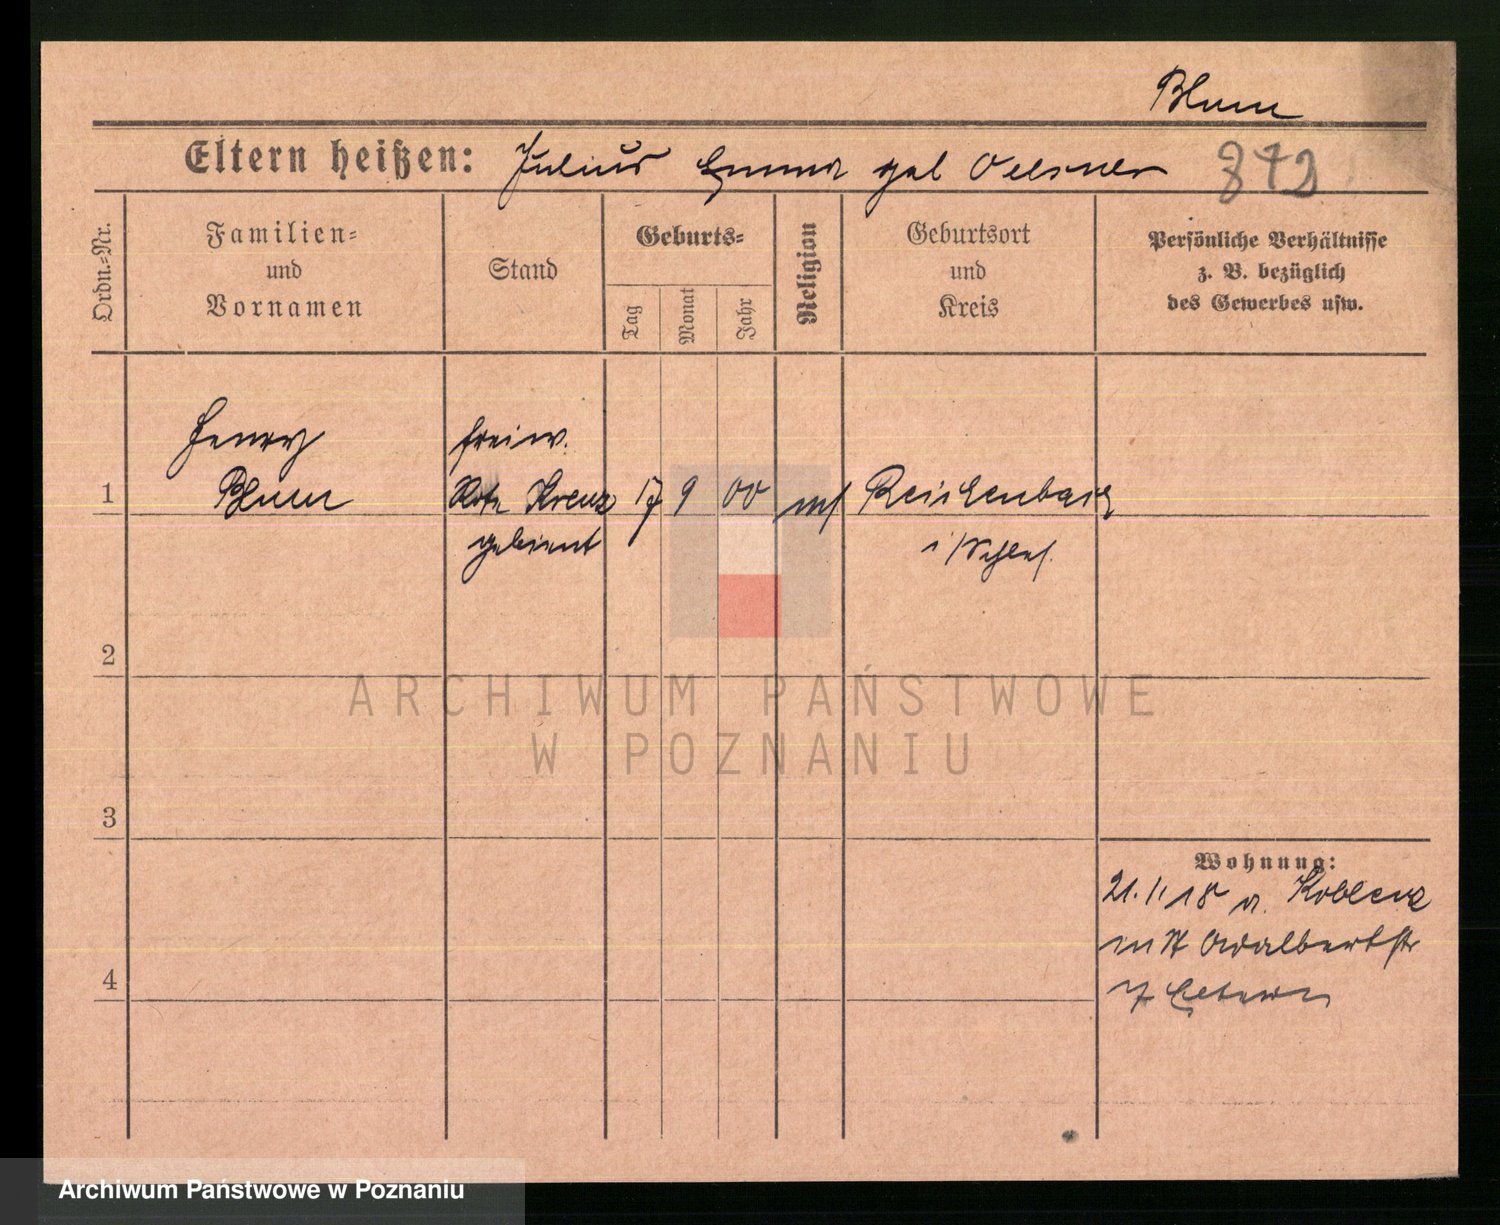 Blum
Eltern heißen: Julius Emma geb Oelsner 872
Ordn.-Nr.
Familien-
und
Vornamen
Stand
Geburts-
Tag
Monat
Jahr
Religion
Geburtsort
und
Kreis
Persönliche Verhältnisse
z. B. bezüglich
des Gewerbes usw.
Henry freiw.
1 Blum Rote Kreuz 17 9 00 mos Reichenbach
gedient i/Schles.
2
ARCHIWUM PAŃSTWOWE
W POZNANIU
3
Wohnung:
21.1.18 v. Koblenz
in St Adalbertstr
7 Eltern
4
Archiwum Państwowe w Poznaniu